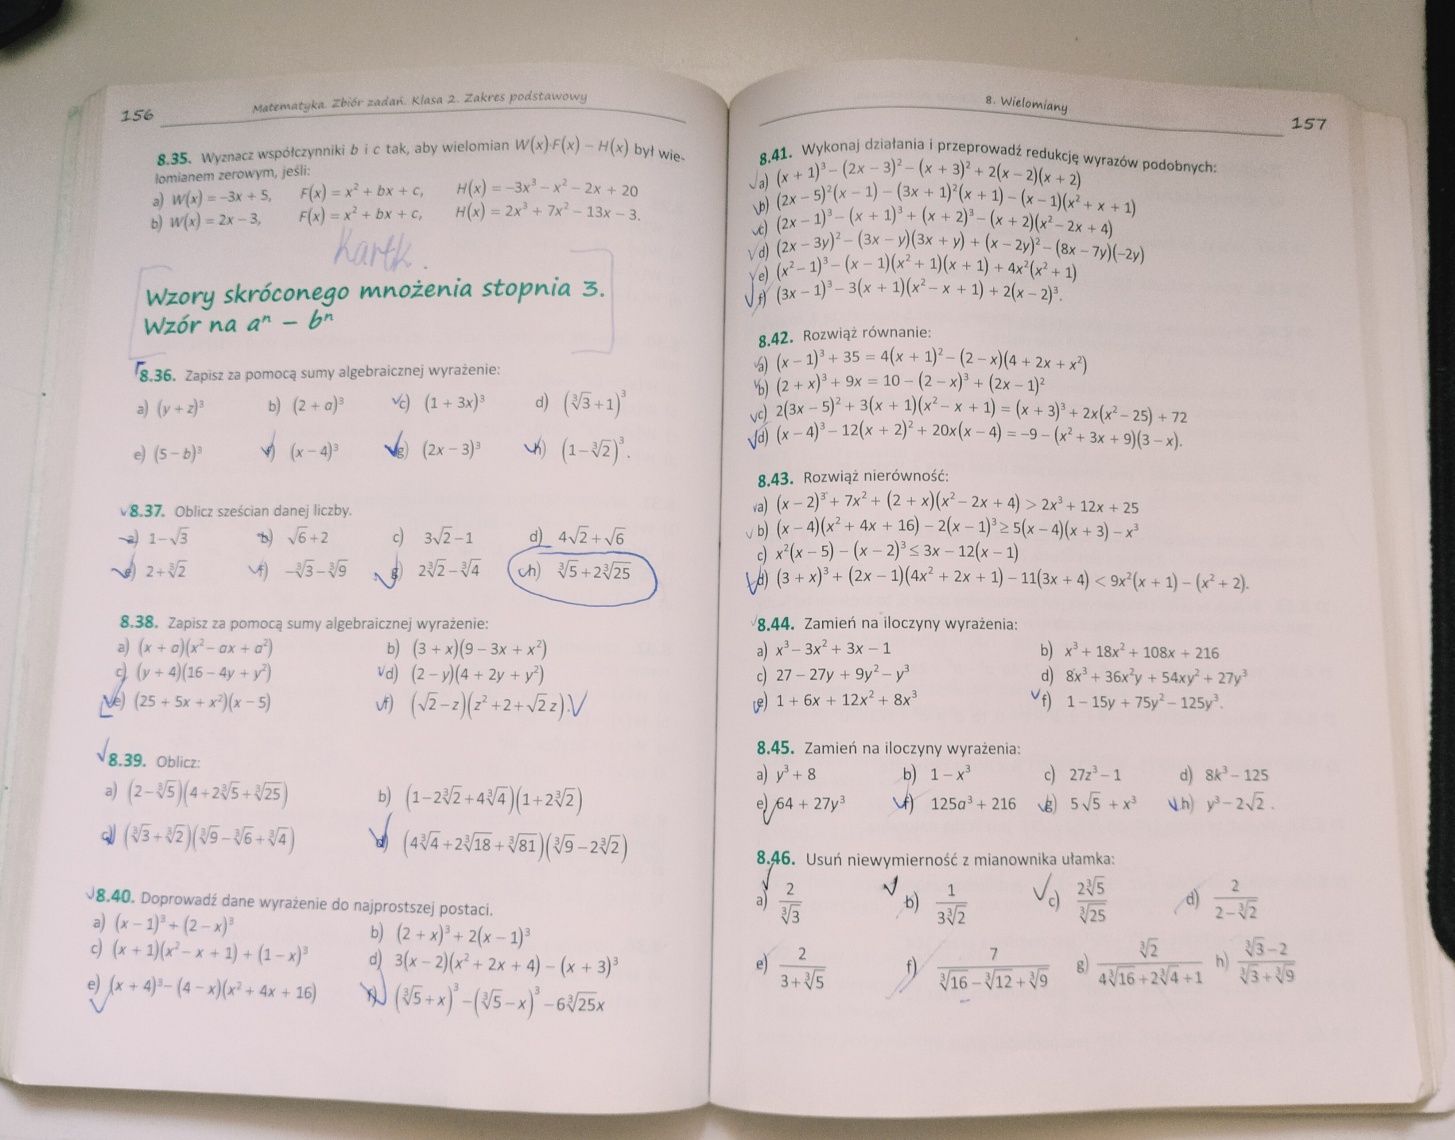 156
Matematyka. Zbiór zadań. Klasa 2. Zakres podstawowy
8.35. Wyznacz współczynniki b i c tak, aby wielomian W(x)·F(x) − H(x) był wie-
lomianem zerowym, jeśli:
a) W(x) = −3x + 5, F(x) = x² + bx + c, H(x) = −3x³ − x² − 2x + 20
b) W(x) = 2x − 3, F(x) = x² + bx + c, H(x) = 2x³ + 7x² − 13x − 3.
Kartk.
Wzory skróconego mnożenia stopnia 3.
Wzór na aⁿ − bⁿ
8.36. Zapisz za pomocą sumy algebraicznej wyrażenie:
a) (y + z)³ b) (2 + a)³ c) (1 + 3x)³ d) (∛3 + 1)³
e) (5 − b)³ f) (x − 4)³ g) (2x − 3)³ h) (1 − ∛2)³.
8.37. Oblicz sześcian danej liczby.
a) 1 − √3 b) √6 + 2 c) 3√2 − 1 d) 4√2 + √6
e) 2 + ∛2 f) −∛3 − ∛9 g) 2∛2 − ∛4 h) ∛5 + 2∛25
8.38. Zapisz za pomocą sumy algebraicznej wyrażenie:
a) (x + a)(x² − ax + a²) b) (3 + x)(9 − 3x + x²)
c) (y + 4)(16 − 4y + y²) d) (2 − y)(4 + 2y + y²)
e) (25 + 5x + x²)(x − 5) f) (√2 − z)(z² + 2 + √2 z).
8.39. Oblicz:
a) (2 − ∛5)(4 + 2∛5 + ∛25) b) (1 − 2∛2 + 4∛4)(1 + 2∛2)
c) (∛3 + ∛2)(∛9 − ∛6 + ∛4) d) (4∛4 + 2∛18 + ∛81)(∛9 − 2∛2)
8.40. Doprowadź dane wyrażenie do najprostszej postaci.
a) (x − 1)³ + (2 − x)³ b) (2 + x)³ + 2(x − 1)³
c) (x + 1)(x² − x + 1) + (1 − x)³ d) 3(x − 2)(x² + 2x + 4) − (x + 3)³
e) (x + 4)³ − (4 − x)(x² + 4x + 16) f) (∛5 + x)³ − (∛5 − x)³ − 6∛25x
8. Wielomiany
157
8.41. Wykonaj działania i przeprowadź redukcję wyrazów podobnych:
a) (x + 1)³ − (2x − 3)² − (x + 3)² + 2(x − 2)(x + 2)
b) (2x − 5)²(x − 1) − (3x + 1)²(x + 1) − (x − 1)(x² + x + 1)
c) (2x − 1)³ − (x + 1)³ + (x + 2)³ − (x + 2)(x² − 2x + 4)
d) (2x − 3y)² − (3x − y)(3x + y) + (x − 2y)² − (8x − 7y)(−2y)
e) (x² − 1)³ − (x − 1)(x² + 1)(x + 1) + 4x²(x² + 1)
f) (3x − 1)³ − 3(x + 1)(x² − x + 1) + 2(x − 2)³.
8.42. Rozwiąż równanie:
a) (x − 1)³ + 35 = 4(x + 1)² − (2 − x)(4 + 2x + x²)
b) (2 + x)³ + 9x = 10 − (2 − x)³ + (2x − 1)²
c) 2(3x − 5)² + 3(x + 1)(x² − x + 1) = (x + 3)³ + 2x(x² − 25) + 72
d) (x − 4)³ − 12(x + 2)² + 20x(x − 4) = −9 − (x² + 3x + 9)(3 − x).
8.43. Rozwiąż nierówność:
a) (x − 2)³ + 7x² + (2 + x)(x² − 2x + 4) > 2x³ + 12x + 25
b) (x − 4)(x² + 4x + 16) − 2(x − 1)³ ≥ 5(x − 4)(x + 3) − x³
c) x²(x − 5) − (x − 2)³ ≤ 3x − 12(x − 1)
d) (3 + x)³ + (2x − 1)(4x² + 2x + 1) − 11(3x + 4) < 9x²(x + 1) − (x² + 2).
8.44. Zamień na iloczyny wyrażenia:
a) x³ − 3x² + 3x − 1 b) x³ + 18x² + 108x + 216
c) 27 − 27y + 9y² − y³ d) 8x³ + 36x²y + 54xy² + 27y³
e) 1 + 6x + 12x² + 8x³ f) 1 − 15y + 75y² − 125y³.
8.45. Zamień na iloczyny wyrażenia:
a) y³ + 8 b) 1 − x³ c) 27z³ − 1 d) 8k³ − 125
e) 64 + 27y³ f) 125a³ + 216 g) 5√5 + x³ h) y³ − 2√2.
8.46. Usuń niewymierność z mianownika ułamka:
a) 2/∛3 b) 1/(3∛2) c) 2∛5/∛25 d) 2/(2 − ∛2)
e) 2/(3 + ∛5) f) 7/(∛16 − ∛12 + ∛9) g) ∛2/(4∛16 + 2∛4 + 1) h) (∛3 − 2)/(∛3 + ∛9)